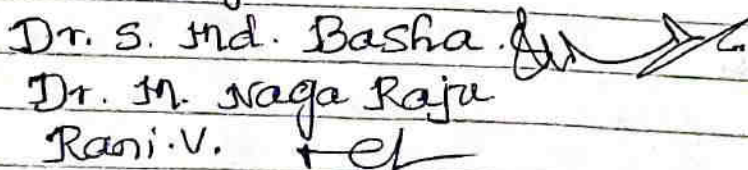 Dr. S. Md. Basha.
Dr. M. Naga Raju
Rani.V.